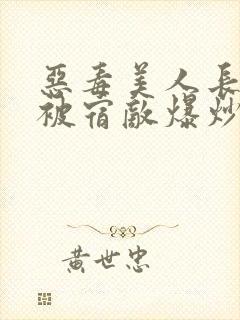 惡毒美人長
被宿敵爆炒
黃世忠